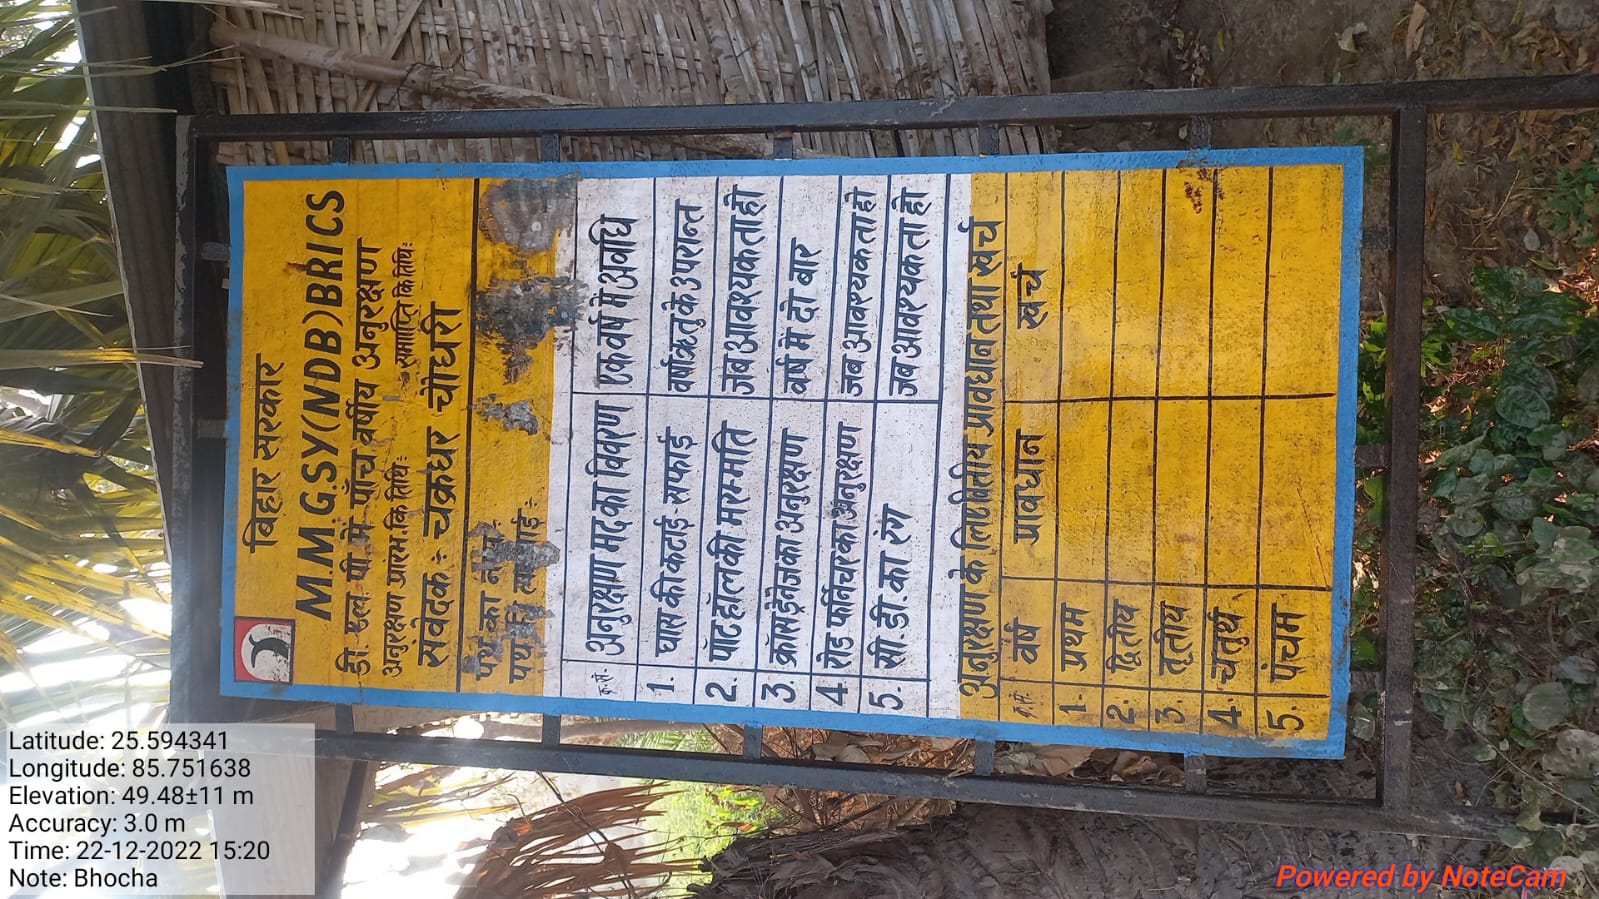 बिहार सरकार
M.M.G.SY(NDB)BRICS
डी. एल. पी. में पाँच वर्षीय अनुरक्षण
अनुरक्षण प्रारम. कि तिथि: समाप्ति कि तिथि:
संवेदक: चक्रधर चौधरी
पथ का
क्र.सं. अनुरक्षण मद का विवरण एक वर्ष में अवधि
1. घास की कटाई-सफाई वर्षा ऋतु के उपरान्त
2. पॉट हॉल की मरम्मति जब आवश्यकता हो
3. क्रॉस ड्रेनेज का अनुरक्षण वर्ष में दो बार
4. रोड फर्निचर का अनुरक्षण जब आवश्यकता हो
5. सी.डी. का रंग जब आवश्यकता हो
अनुरक्षण के लिए वित्तीय प्रावधान तथा खर्च
क्र.सं. वर्ष प्रावधान खर्च
1. प्रथम
2. द्वितीय
3. तृतीय
4. चतुर्थ
5. पंचम
Latitude: 25.594341
Longitude: 85.751638
Elevation: 49.48±11 m
Accuracy: 3.0 m
Time: 22-12-2022 15:20
Note: Bhocha
Powered by NoteCam